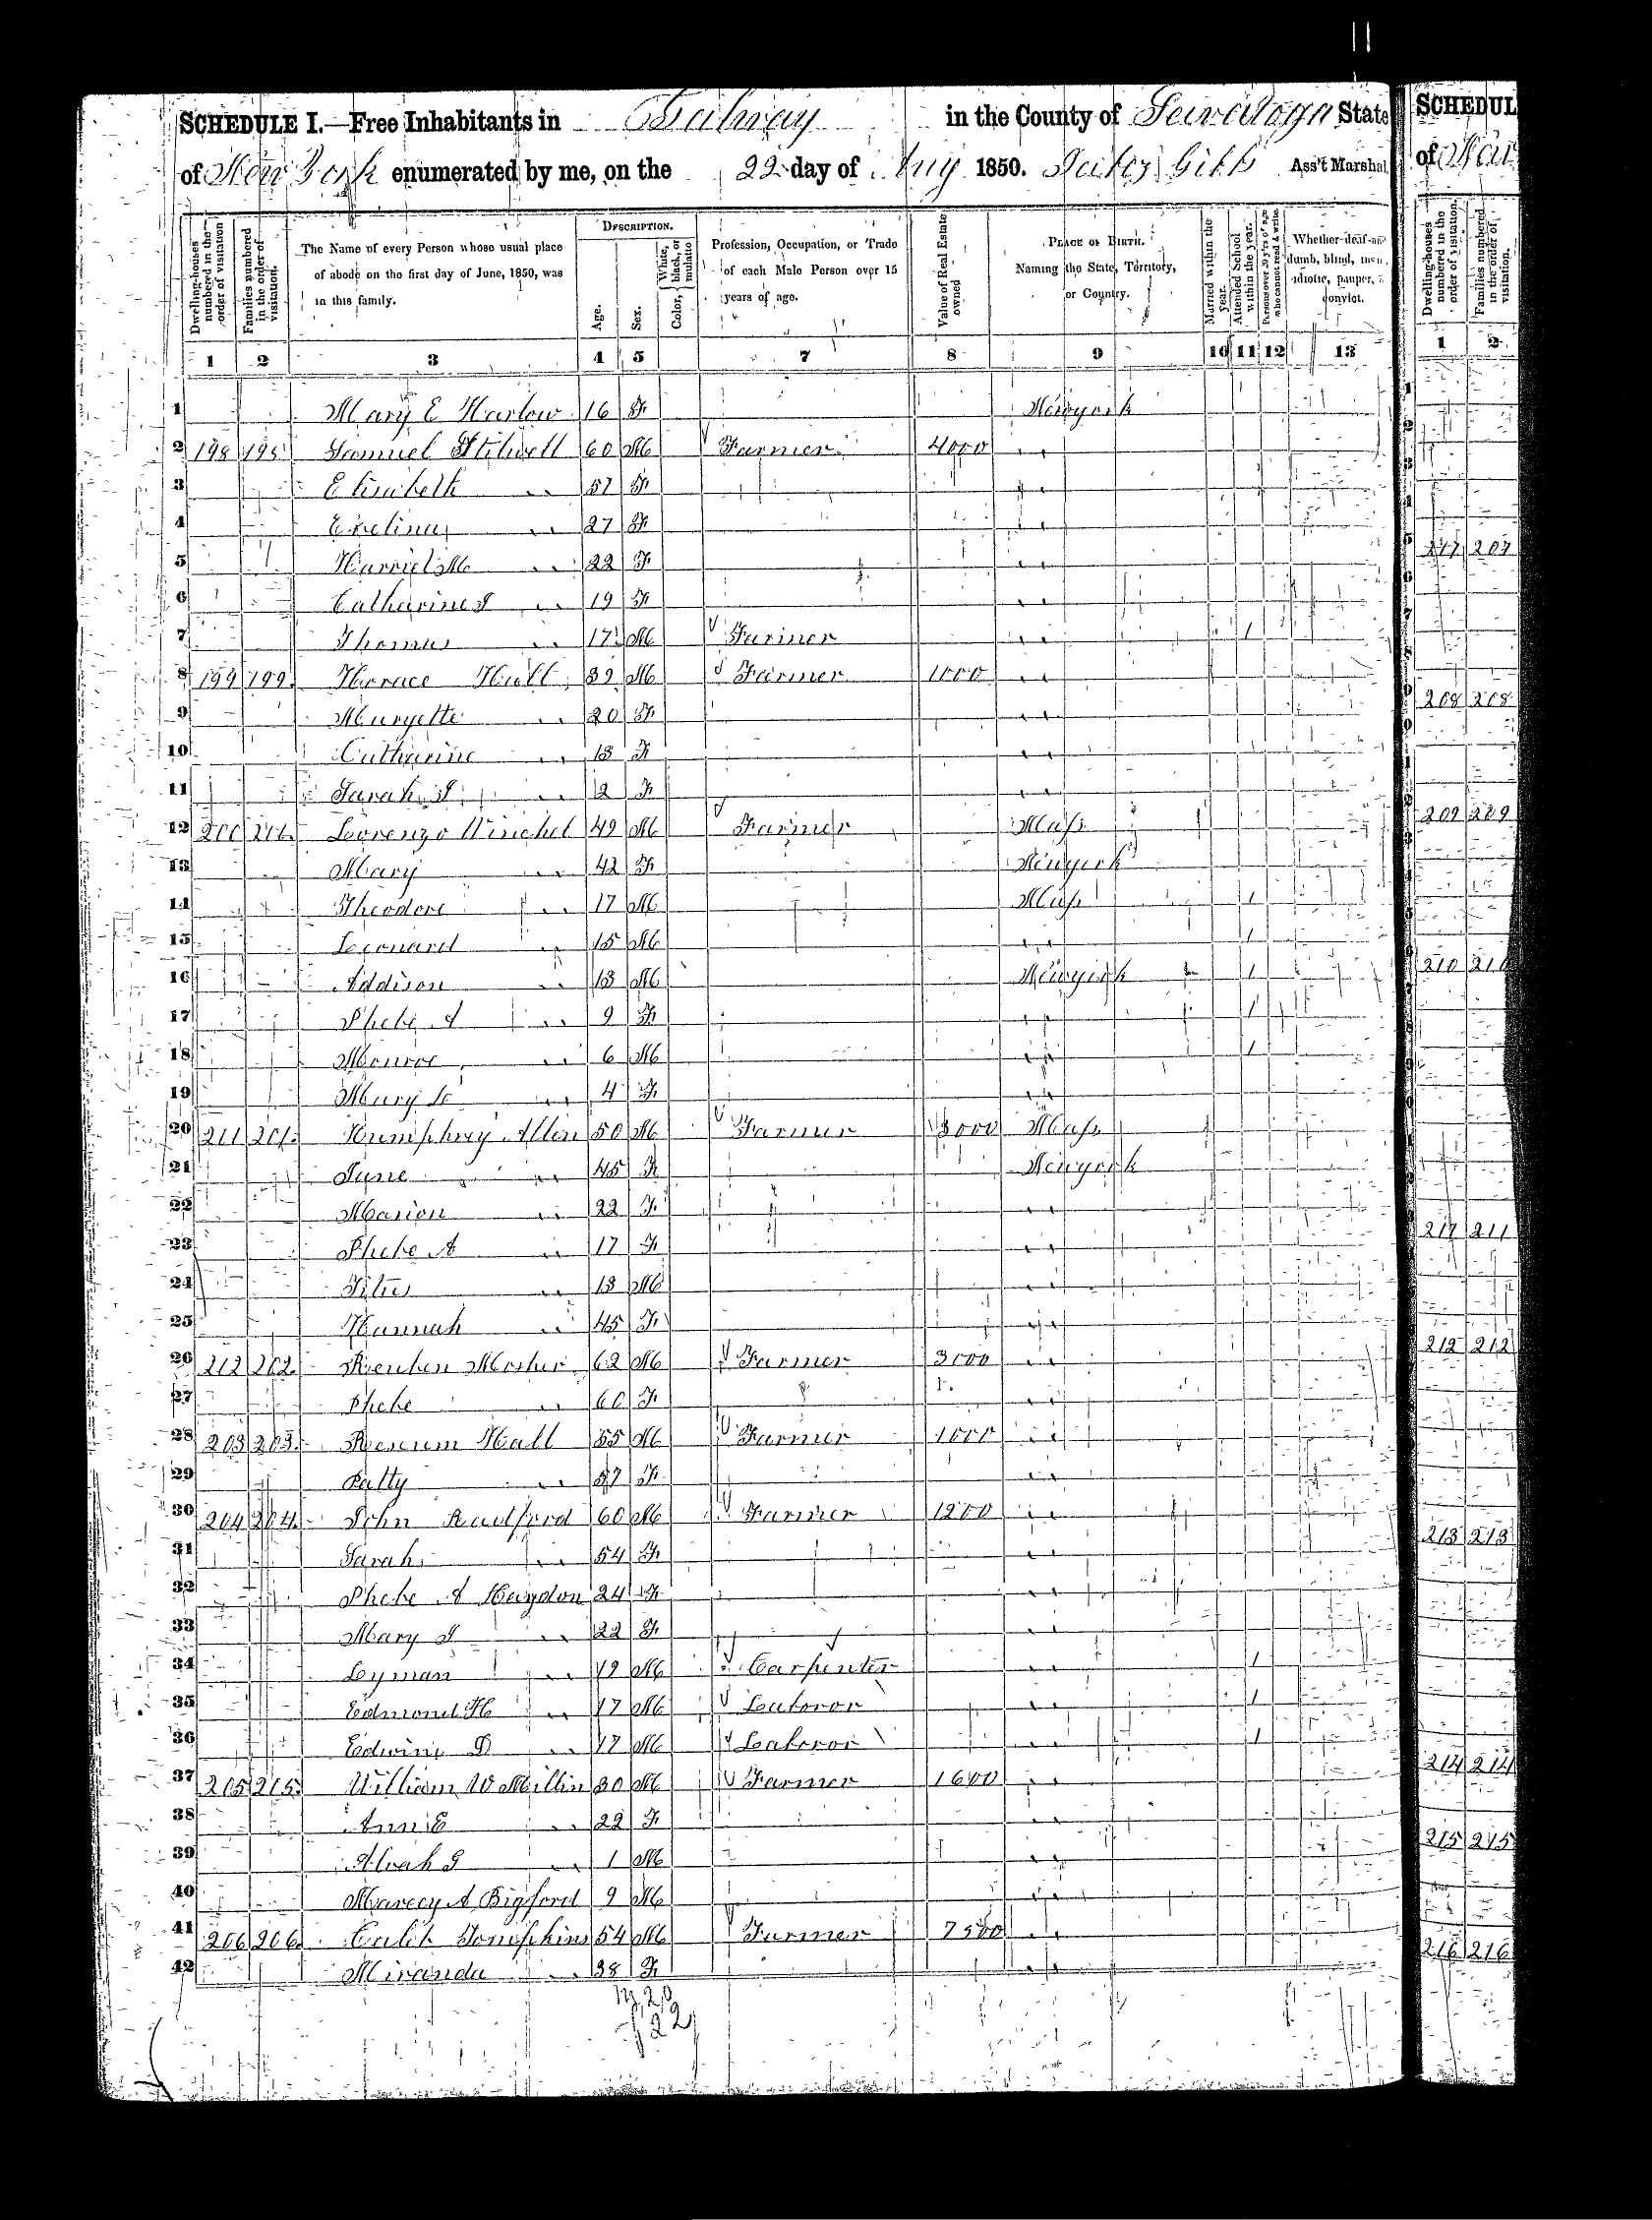 SCHEDULE I.—Free Inhabitants in Galway in the County of Saratoga State
of New York enumerated by me, on the 22 day of Aug 1850. Jabez Gibbs Ass't Marshal
SCHEDUL
of New
Dwelling-houses numbered in the order of visitation
Families numbered in the order of visitation.
The Name of every Person whose usual place of abode on the first day of June, 1850, was in this family.
DESCRIPTION.
Age.
Sex.
Color, White, black, or mulatto
Profession, Occupation, or Trade of each Male Person over 15 years of age.
Value of Real Estate owned
PLACE OF BIRTH. Naming the State, Territory, or Country.
Married within the year.
Attended School within the year.
Persons over 20 y'rs of age who cannot read & write.
Whether deaf and dumb, blind, idiotic, pauper, convict.
1 2 3 4 5 7 8 9 10 11 12 13
1 Mary E Harlow 16 F Newyork
2 198 198 Samuel Stilwell 60 M Farmer 4000 " "
3 Elisabeth " " 57 F " "
4 Evelina " " 27 F " "
5 Harriet M " " 22 F " "
6 Catharine J " " 19 F " "
7 Thomas " " 17 M Farmer " " 1
8 199 199 Horace Hall 39 M Farmer 1000 " "
9 Maryette " " 20 F " "
10 Catharine " " 13 F " "
11 Sarah J " " 2 F " "
12 200 200 Lorenzo Winchel 49 M Farmer Mass
13 Mary " " 42 F Newyork
14 Theodore " " 17 M Mass 1
15 Leonard " " 15 M " " 1
16 Addison " " 13 M Newyork 1
17 Phebe A " " 9 F " " 1
18 Monroe " " 6 M " " 1
19 Mary " " 4 F " "
20 211 201 Humphrey Allen 50 M Farmer 3000 Mass
21 Jane " " 45 F Newyork
22 Marion " " 22 F " "
23 Phebe A " " 17 F " "
24 Titus " " 13 M " "
25 Hannah " " 45 F " "
26 212 202 Reuben Mosher 62 M Farmer 3000 " "
27 Phebe " " 60 F
28 203 203 Hall 55 M Farmer 1000 " "
29 Patty " " 57 F " "
30 204 204 John Radford 60 M Farmer 1200 " "
31 Sarah " " 54 F " "
32 Phebe A Haydon 24 F " "
33 Mary J " " 22 F " "
34 Lyman " " 19 M Carpenter " " 1
35 Edmond H " " 17 M Laboror " " 1
36 Edwin D " " 17 M Laboror " " 1
37 205 215 William W Millin 30 M Farmer 1600 " "
38 Ann E " " 22 F " "
39 Alvah G " " 1 M " "
40 Marecy A Bigford 9 M " "
41 206 206 Calib Tompkins 54 M Farmer 7500 " "
42 Miranda " " 38 F " "
Dwelling-houses numbered in the order of visitation.
Families numbered in the order of visitation.
1 2
217 207
208 208
209 209
210 210
211 211
212 212
213 213
214 214
215 215
216 216